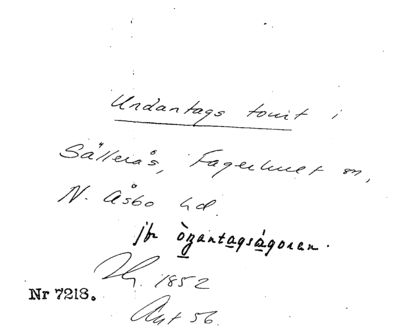 Undantags tomt i
Sällerås, Fagerhult sn,
N. Åsbo hd.
jfr ònantagságoran.
Hg. 1852
Nr 7218.
Ant 56.